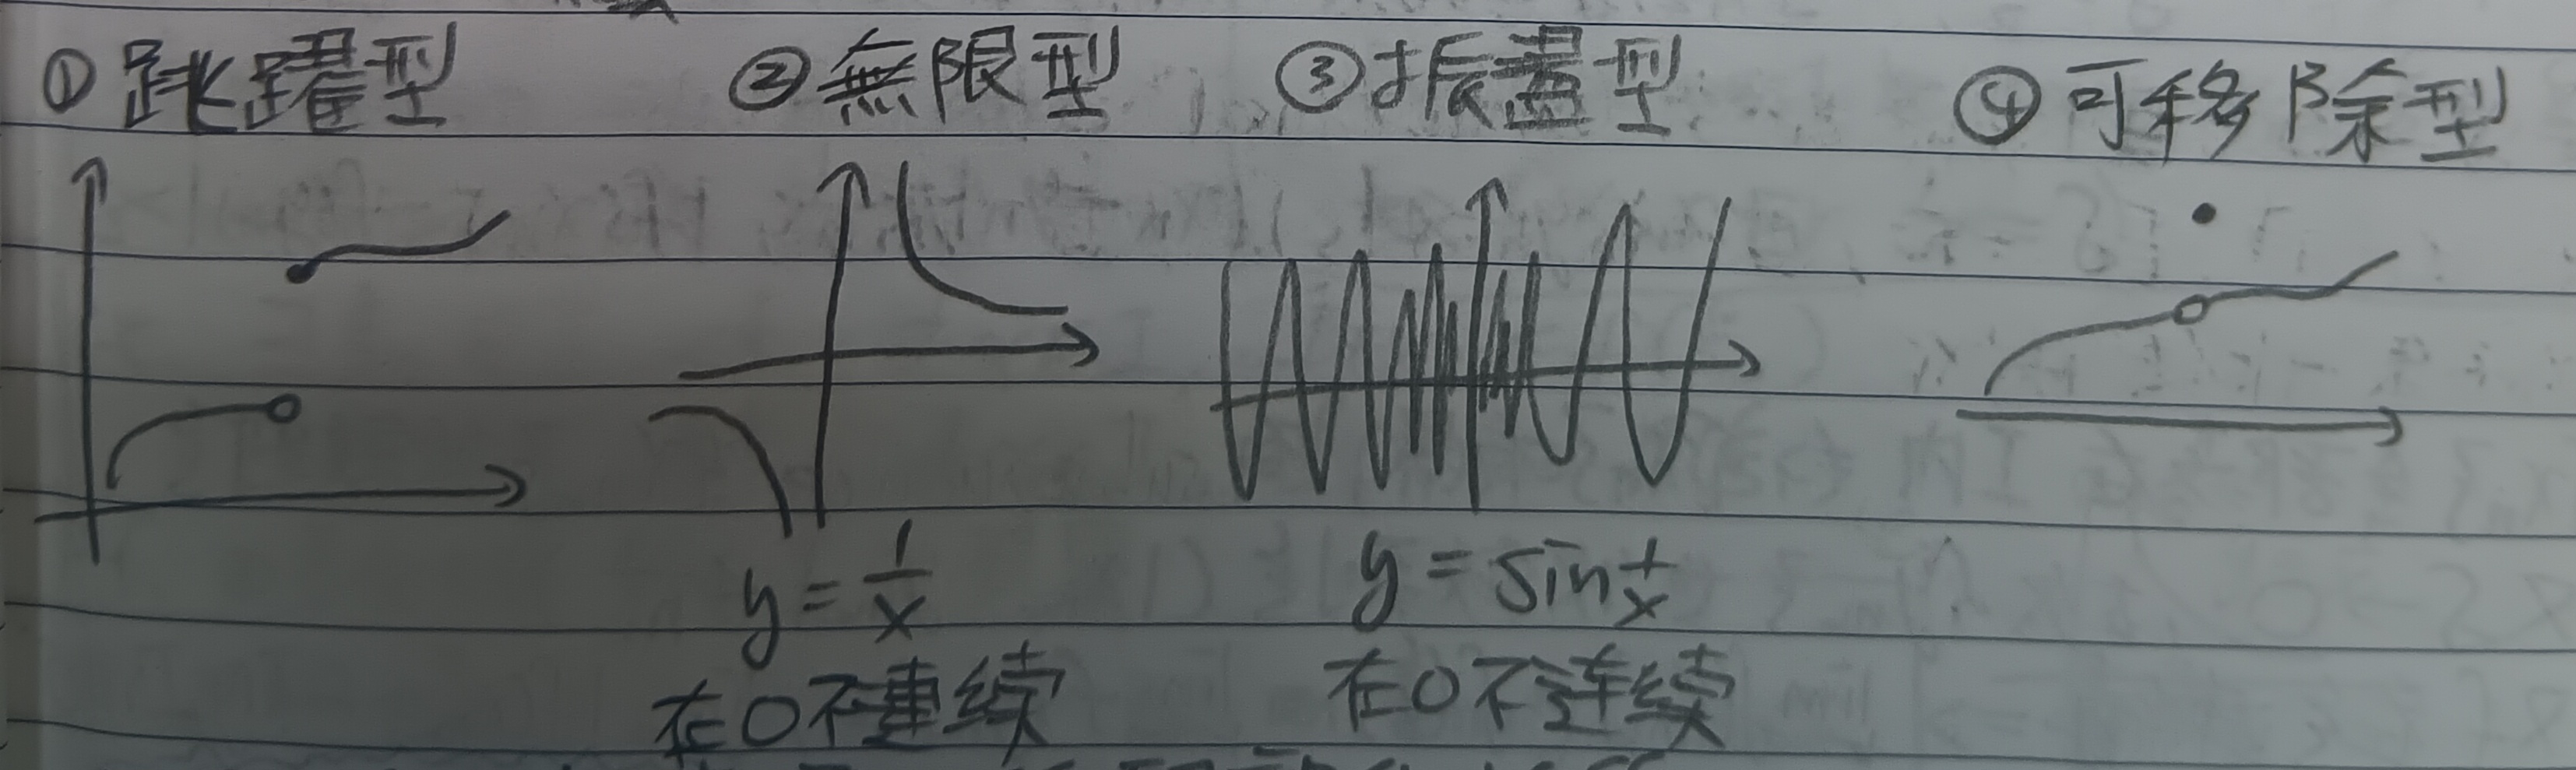 ① 跳躍型 ② 無限型 ③ 振盪型 ④ 可移除型
y = 1/x y = sin 1/x
在0不連续 在0不连续